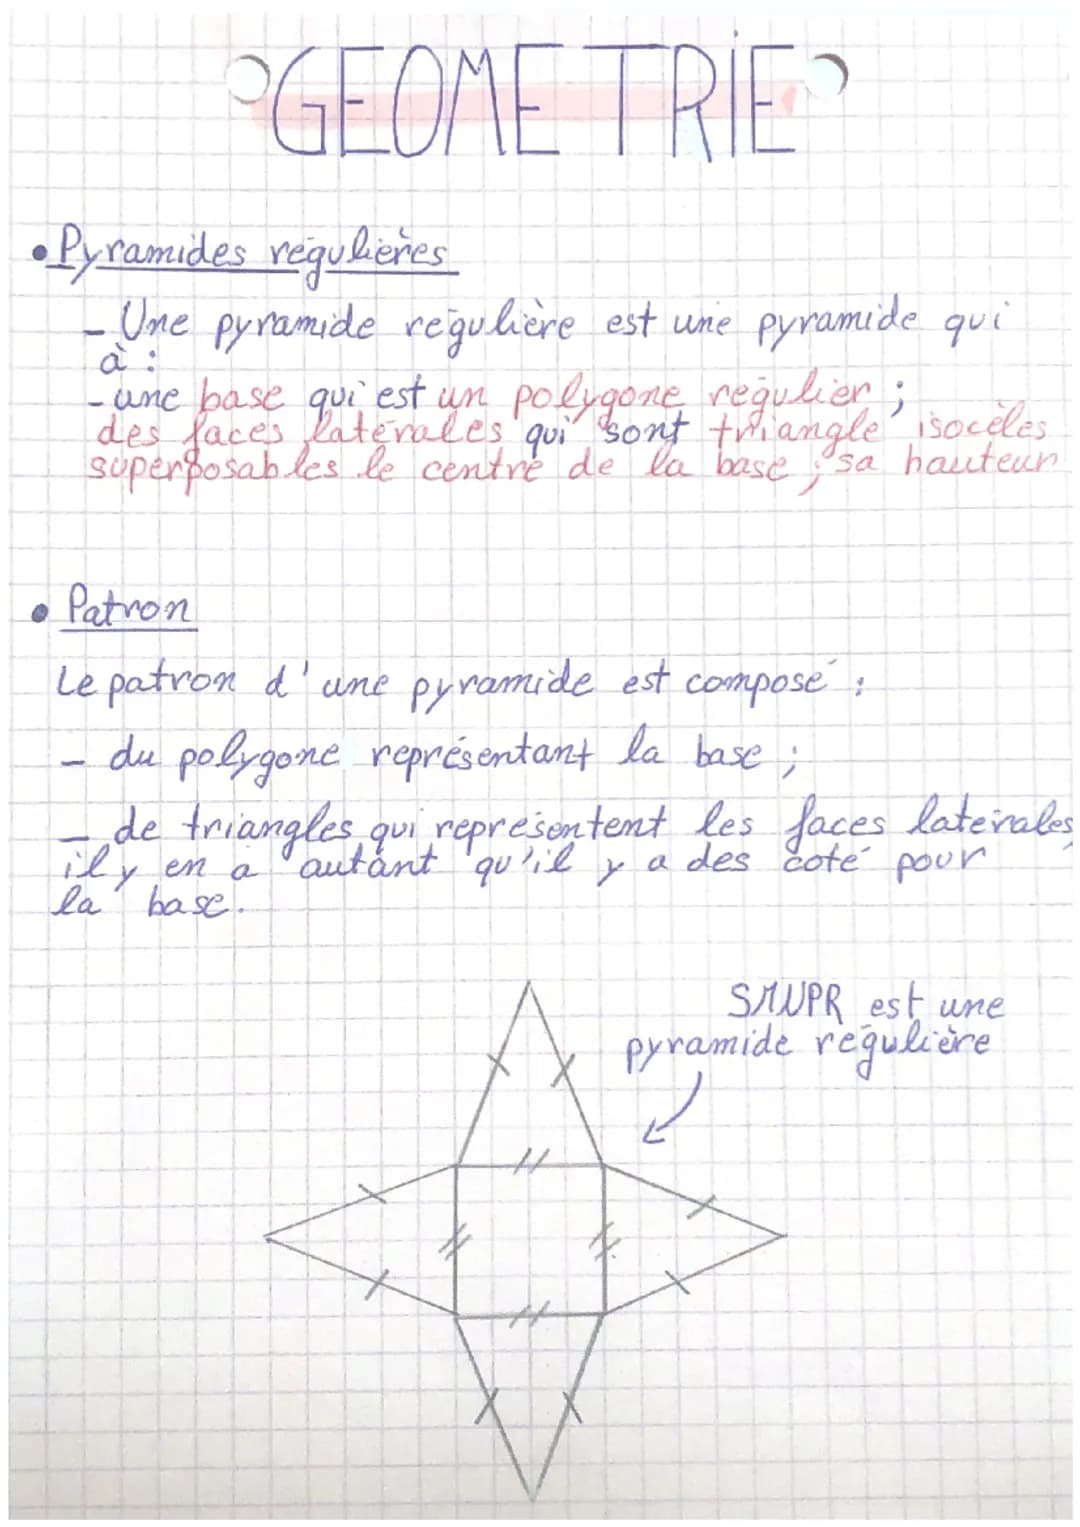 GEOMETRIE
• Pyramides régulières
- Une pyramide régulière est une pyramide qui
à :
- une base qui est un polygone régulier ;
des faces latérales qui sont triangle isocèles
superposables le centre de la base ; sa hauteur
• Patron
Le patron d'une pyramide est composé :
- du polygone représentant la base ;
- de triangles qui représentent les faces latérales
il y en a autant qu'il y a des coté pour
la base.
SMUPR est une
pyramide régulière